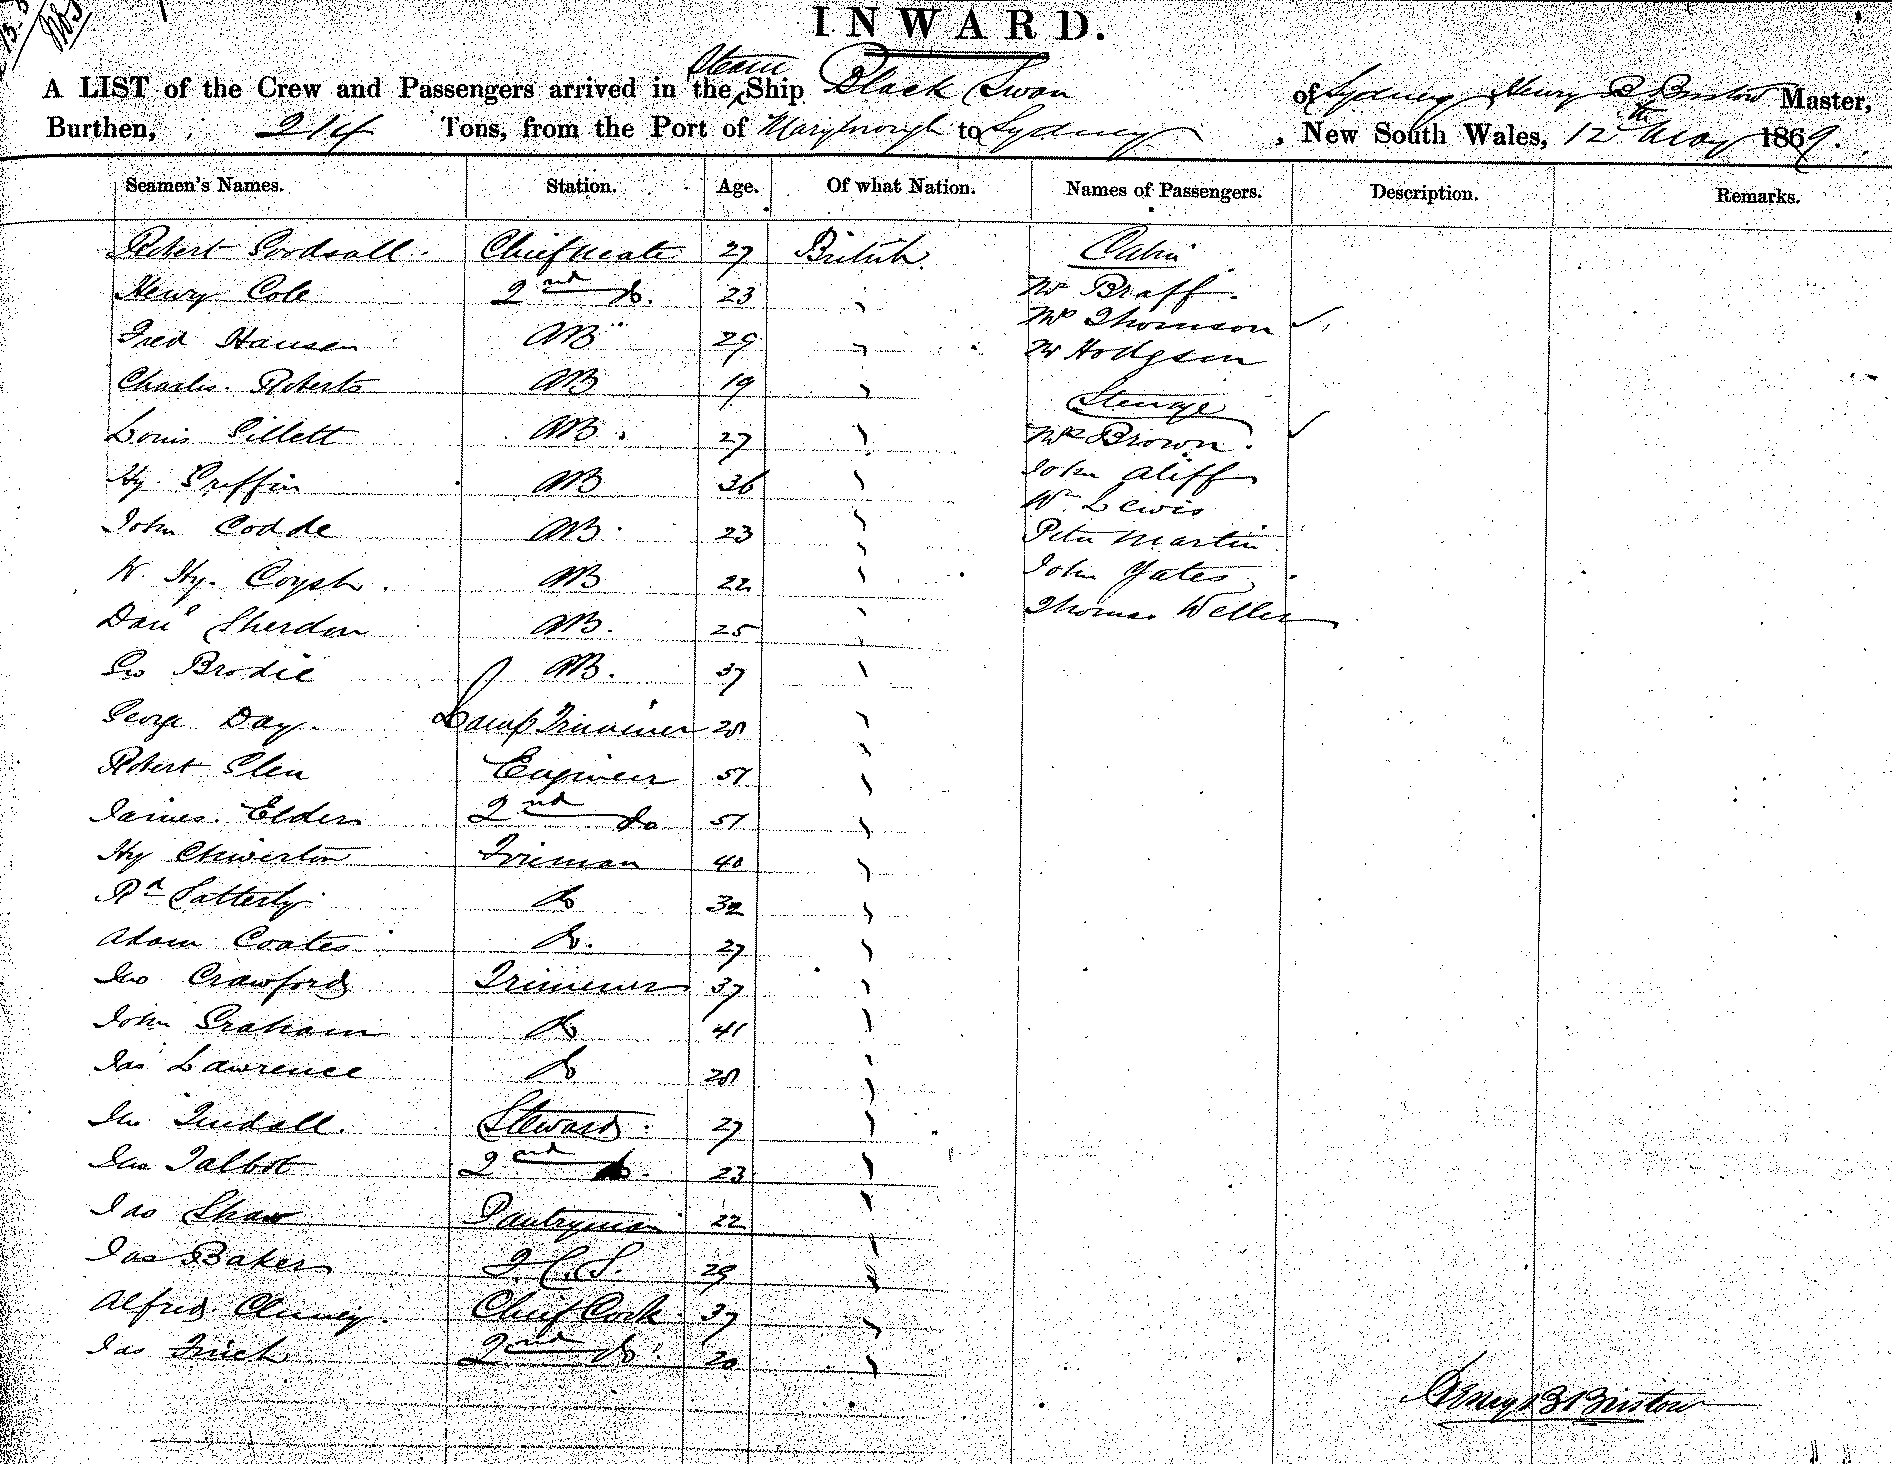 INWARD.
A LIST of the Crew and Passengers arrived in the Steam Ship Black Swan of Sydney Henry B Bristow Master,
Burthen, 214 Tons, from the Port of Maryborough to Sydney, New South Wales, 12th May 1869.
Seamen's Names. Station. Age. Of what Nation. Names of Passengers. Description. Remarks.
Robert Goodsall. Chief Mate 27 British. Cabin
Henry Cole 2nd Do. 23 " Mr Braff.
Mr Thomson ✓
Fred Hansen AB 29 " Mr Hodgson
Charles Roberts AB 19 " Steerage
Louis Gillett AB. 27 " Mr Brown. ✓
Hy. Griffin AB 36 " John Aliff
Wm Lewis
John Codde AB. 23 " Peter Martin
W. Hy. Coysh. AB 22 " John Yates
Danl Sherdon AB. 25 " Thomas Weller
Geo Brodie AB. 37 "
George Day. Lamp Trimmer 28 "
Robert Glen Engineer 51 "
James Elder 2nd Do 51 "
Hy Chiverton Fireman 40 "
Rd Satterly Do 32 "
Adam Coates Do. 27 "
Jno Crawford Trimmer 37 "
John Graham Do 41 "
Jas Lawrence Do 28 "
Jno Tindall. Steward. 27 "
Jno Talbot 2nd Do. 23 "
Jas Shaw Pantryman 22 "
Jas Baker F.C.S. 29 "
Alfred Chief Cook. 37 "
Jas Finch 2nd Do. 20 "
Henry B Bristow